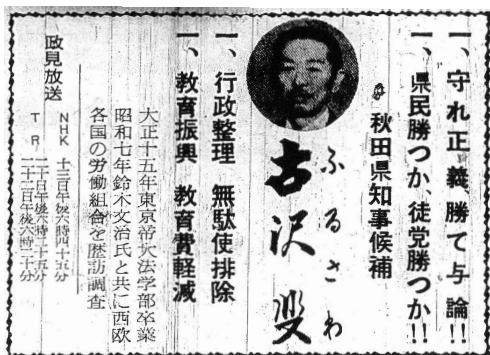 一、守れ正義、勝て与論!!
一、県民勝つか、徒党勝つか!!
秋田県知事候補
ふるさわ
古沢斐
一、行政整理 無駄使排除
一、教育振興 教育費軽減
大正十五年東京帝大法学部卒業
昭和七年鈴木文治氏と共に西欧
各国の労働組合を歴訪調査
政見放送
NHK 十三日午後六時四十五分
二十日午後六時二十五分
TR 二十二日午後六時二十分